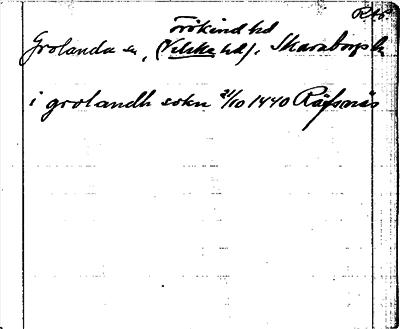 RAÖ
Frökind hd
Grolanda sn, (Vilske hd), Skaraborgs län
i grolandh sokn 21/10 1440 Räfsnäs